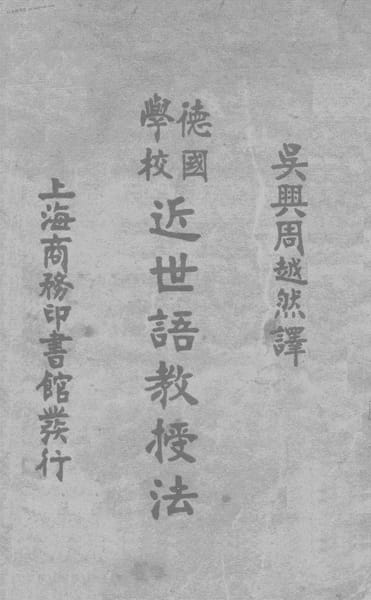 吳興周越然譯
德國
學校
近世語教授法
上海商務印書館發行